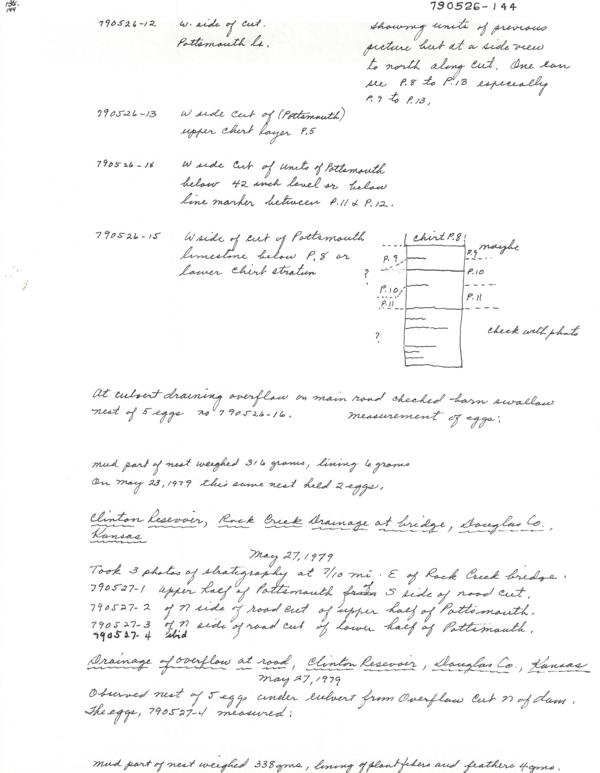 136.
144
790526-144
790526-12 W. side of cut.
Pottsmouth ls.
Showing units of previous
picture but at a side view
to north along cut. One can
see P.8 to P.13 especially
P.9 to P.13.
790526-13 W side cut of (Pottsmouth)
upper chert layer P.5
790526-14 W side cut of units of Pottsmouth
below 42 inch level or below
line marker between P.11 & P.12.
790526-15 W side of cut of Pottsmouth
limestone below P.8 or
lower chert stratum
chert P.8!
P.9
P.9 maybe
?
P.10
P.10
P.11
P.11
?
check with photo
At culvert draining overflow on main road checked barn swallow
nest of 5 eggs no 790526-16. measurement of eggs:
mud part of nest weighed 316 grams, lining 6 grams
On May 23, 1979 this same nest held 2 eggs.
Clinton Resevoir, Rock Creek Drainage at bridge, Douglas Co.,
Kansas
May 27, 1979
Took 3 photos of stratography at 7/10 mi. E of Rock Creek bridge.
790527-1 upper half of Pottsmouth S side of road cut.
790527-2 of N side of road cut of upper half of Pottsmouth.
790527-3 of N side of road cut of lower half of Pottsmouth.
790527-4
Drainage of overflow at road, Clinton Resevoir, Douglas Co., Kansas
May 27, 1979
Observed nest of 5 eggs under culvert from Overflow cut N of dam.
The eggs, 790527-4 measured:
mud part of nest weighed 338 gms, lining of plant fibers and feathers 4 gms.